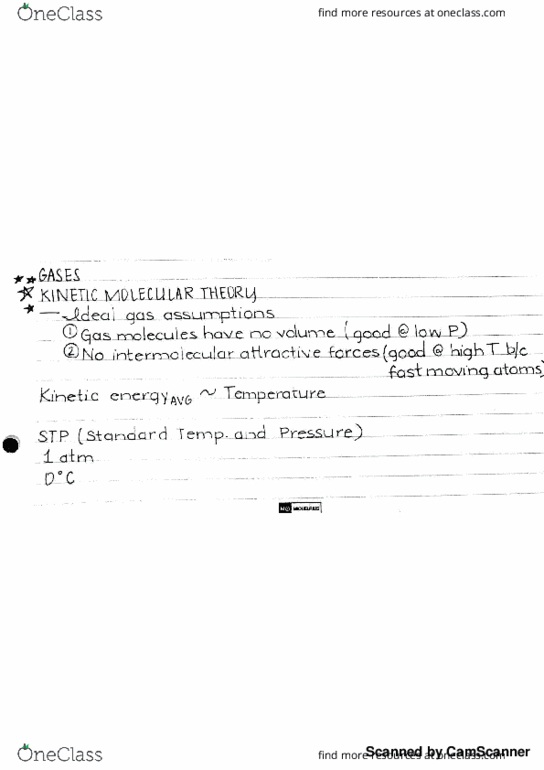 OneClass
find more resources at oneclass.com
GASES
KINETIC MOLECULAR THEORY
— Ideal gas assumptions
① Gas molecules have no volume (good @ low P)
② No intermolecular attractive forces (good @ high T b/c
fast moving atoms)
Kinetic energy AVG ~ Temperature
STP (Standard Temp. and Pressure)
1 atm
0°C
OneClass
find more resources at oneclass.com
Scanned by CamScanner